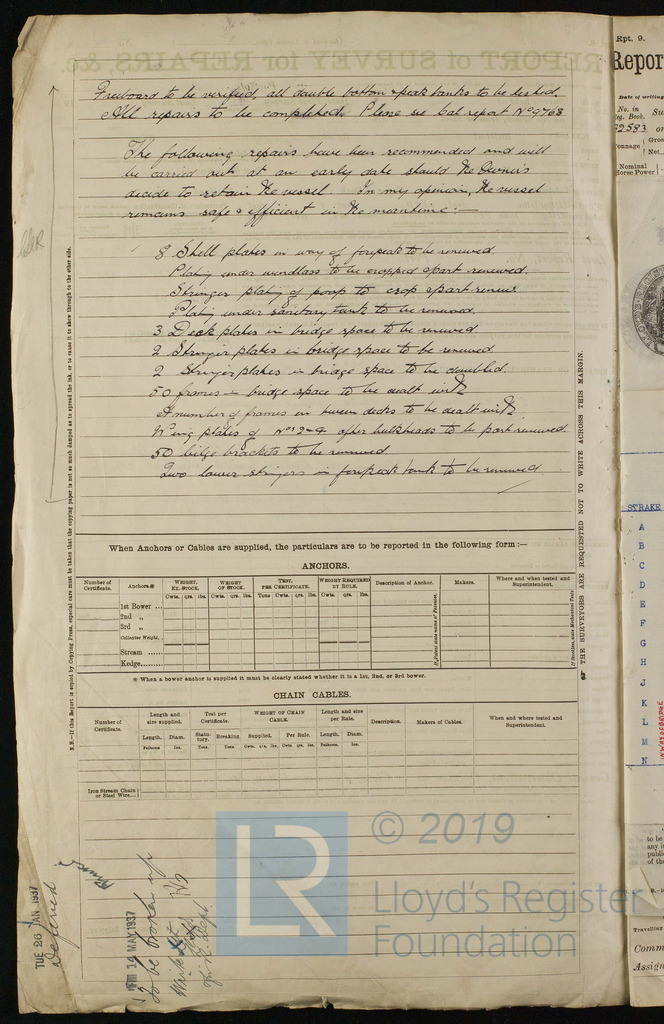 Freeboard to be verified, all double bottom & peak tanks to be tested.
All repairs to be completed. Please see Cal report No 9763
The following repairs have been recommended and will
be carried out at an early date should the Owners
decide to retain the vessel. In my opinion, the vessel
remains safe & efficient in the meantime:—
8 Shell plates in way of forepeak to be renewed.
Plating under windlass to be cropped & part renewed.
Stringer plating of poop to crop & part renew
Plating under sanitary tank to be renewed.
3 Deck plates in bridge space to be renewed
2 Stringer plates in bridge space to be renewed
2 Stringer plates in bridge space to be doubled.
50 frames in bridge space to be dealt with
A number of frames in tween decks to be dealt with
Wing plates of No 1 2 & 4 after bulkheads to be part renewed.
50 bilge brackets to be renewed
Two lower stringers in forepeak tank to be renewed
N.B.—If this Report is copied by Copying Press, especial care must be taken that the copying paper is not so much damped as to spread the ink, or to cause it to show through to the other side.
THE SURVEYORS ARE REQUESTED NOT TO WRITE ACROSS THIS MARGIN.
When Anchors or Cables are supplied, the particulars are to be reported in the following form :—
ANCHORS.
Number of Certificate. Anchors.* WEIGHT, EX. STOCK. WEIGHT OF STOCK. TEST, PER CERTIFICATE. WEIGHT REQUIRED BY RULE. Description of Anchor. Makers. Where and when tested and Superintendent.
Cwts. qrs. lbs. Cwts. qrs. lbs. Tons Cwts. qrs. lbs. Cwts. qrs. lbs.
1st Bower ...
2nd „
3rd „
Collective Weight.
Stream ......
Kedge........
* When a bower anchor is supplied it must be clearly stated whether it is a 1st, 2nd, or 3rd bower.
CHAIN CABLES.
Number of Certificate. Length and size supplied. Test per Certificate. WEIGHT OF CHAIN CABLE. Length and size per Rule. Description. Makers of Cables. When and where tested and Superintendent.
Length. Diam. Statutory. Breaking. Supplied. Per Rule. Length. Diam.
Fathoms Ins. Tons. Tons. Cwts. qrs. lbs. Cwts. qrs. lbs. Fathoms. Ins.
Iron Stream Chain or Steel Wire....
TUE 26 JAN 1937
Deferred
FRI 14 MAY 1937
To be broken up
© 2019
LR
Lloyd's Register
Foundation
Rpt. 9.
Repor
Date of writing
No. in
Reg. Book.
Su
Gros
Net
Nominal
Horse Power
STRAKE
A
B
C
D
E
F
G
H
J
K
L
M
N
to be
any i
public
of the
Travelling
Comm
Assign